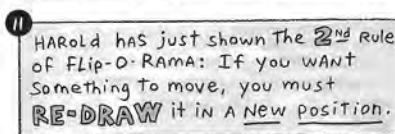 11
HAROLd HAS just shown THE 2nd RuLe
of FLip-O-RAMA: If you WANT
Something to move, you must
RE-DRAW it in A New Position.